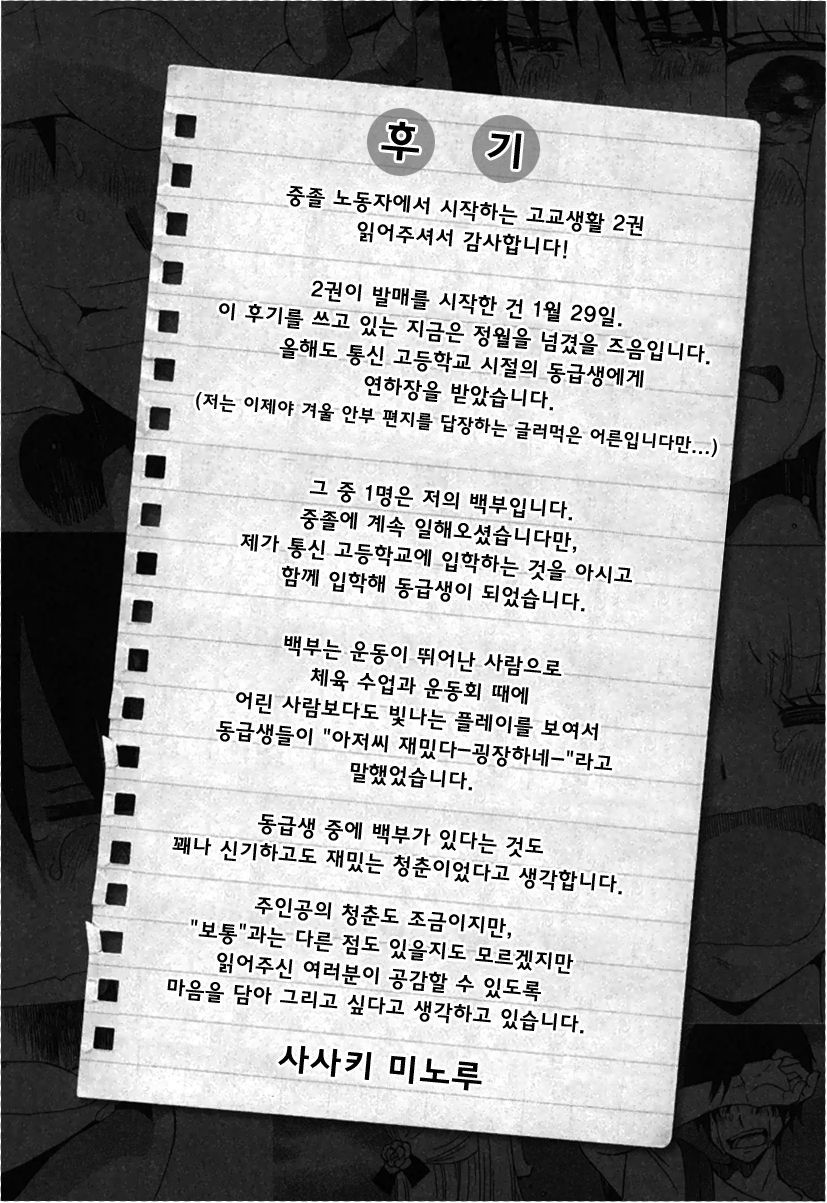 후 기
중졸 노동자에서 시작하는 고교생활 2권
읽어주셔서 감사합니다!
2권이 발매를 시작한 건 1월 29일.
이 후기를 쓰고 있는 지금은 정월을 넘겼을 즈음입니다.
올해도 통신 고등학교 시절의 동급생에게
연하장을 받았습니다.
(저는 이제야 겨울 안부 편지를 답장하는 글러먹은 어른입니다만...)
그 중 1명은 저의 백부입니다.
중졸에 계속 일해오셨습니다만,
제가 통신 고등학교에 입학하는 것을 아시고
함께 입학해 동급생이 되었습니다.
백부는 운동이 뛰어난 사람으로
체육 수업과 운동회 때에
어린 사람보다도 빛나는 플레이를 보여서
동급생들이 "아저씨 재밌다-굉장하네-"라고
말했었습니다.
동급생 중에 백부가 있다는 것도
꽤나 신기하고도 재밌는 청춘이었다고 생각합니다.
주인공의 청춘도 조금이지만,
"보통"과는 다른 점도 있을지도 모르겠지만
읽어주신 여러분이 공감할 수 있도록
마음을 담아 그리고 싶다고 생각하고 있습니다.
사사키 미노루